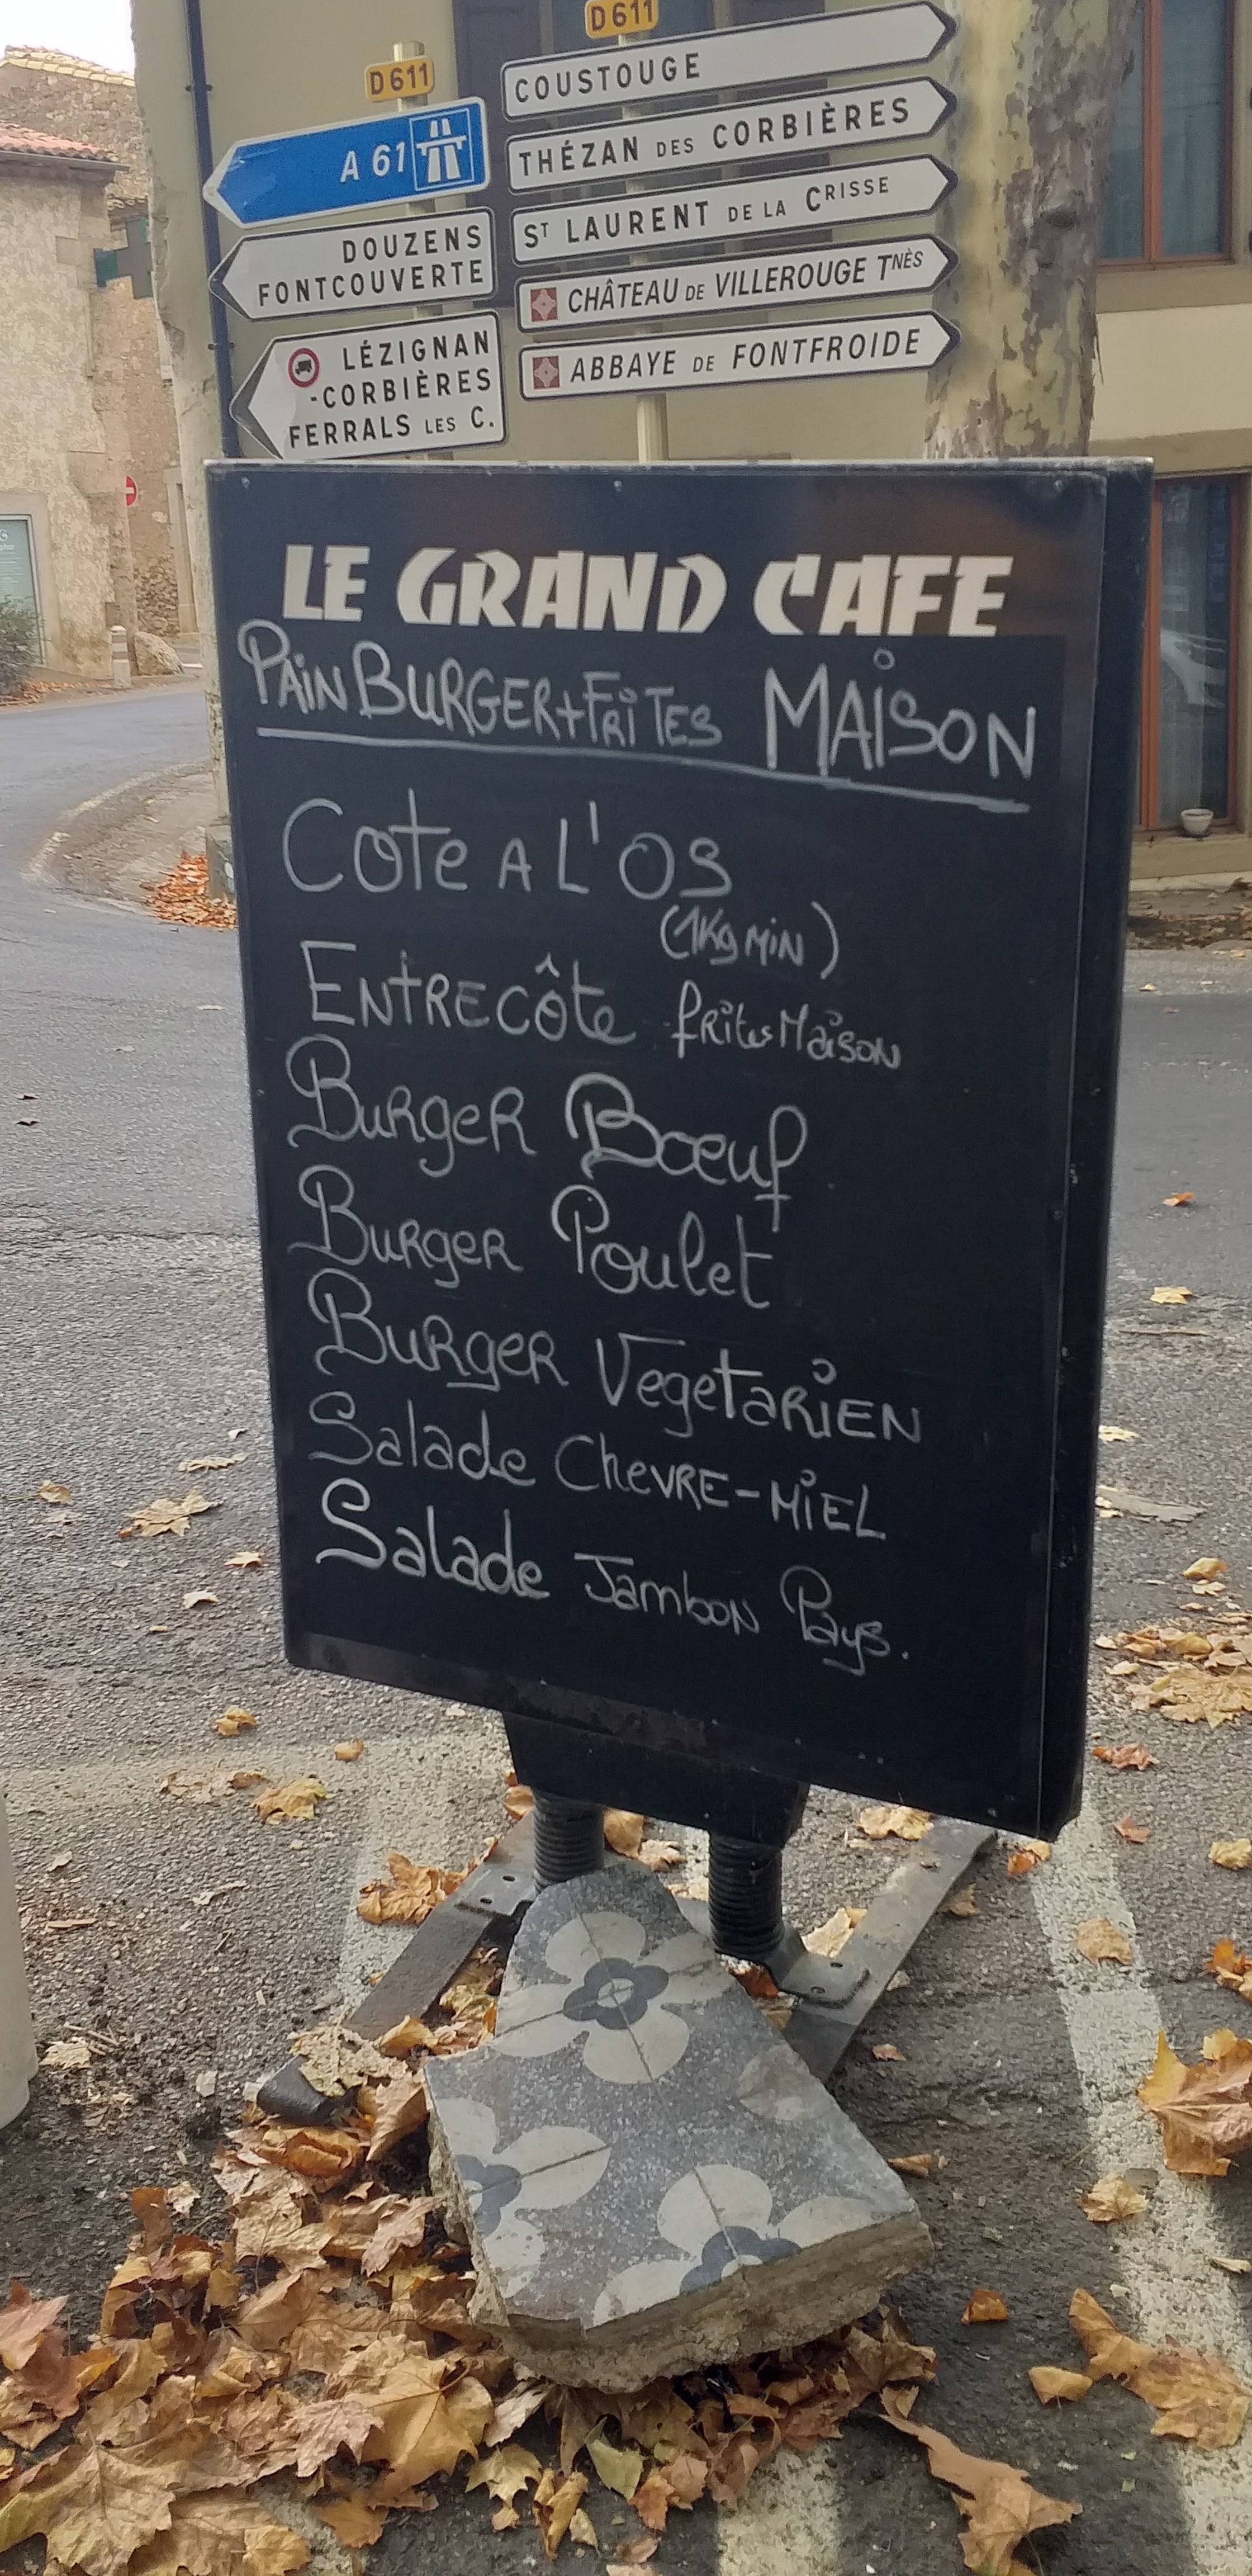 D611
D611
A 61
DOUZENS
FONTCOUVERTE
LÉZIGNAN
-CORBIÈRES
FERRALS LES C.
COUSTOUGE
THÉZAN DES CORBIÈRES
ST LAURENT DE LA CRISSE
CHÂTEAU DE VILLEROUGE TNÈS
ABBAYE DE FONTFROIDE
LE GRAND CAFE
PAiN BURGER+FRiTES MAiSON
COte A L'OS
(1Kg MiN)
ENtRECôte fRites MaisoN
BuRgeR Bœuf
BuRgeR Poulet
BuRgeR VegetaRiEN
Salade CheVRE-MiEL
Salade JamboN Pays.